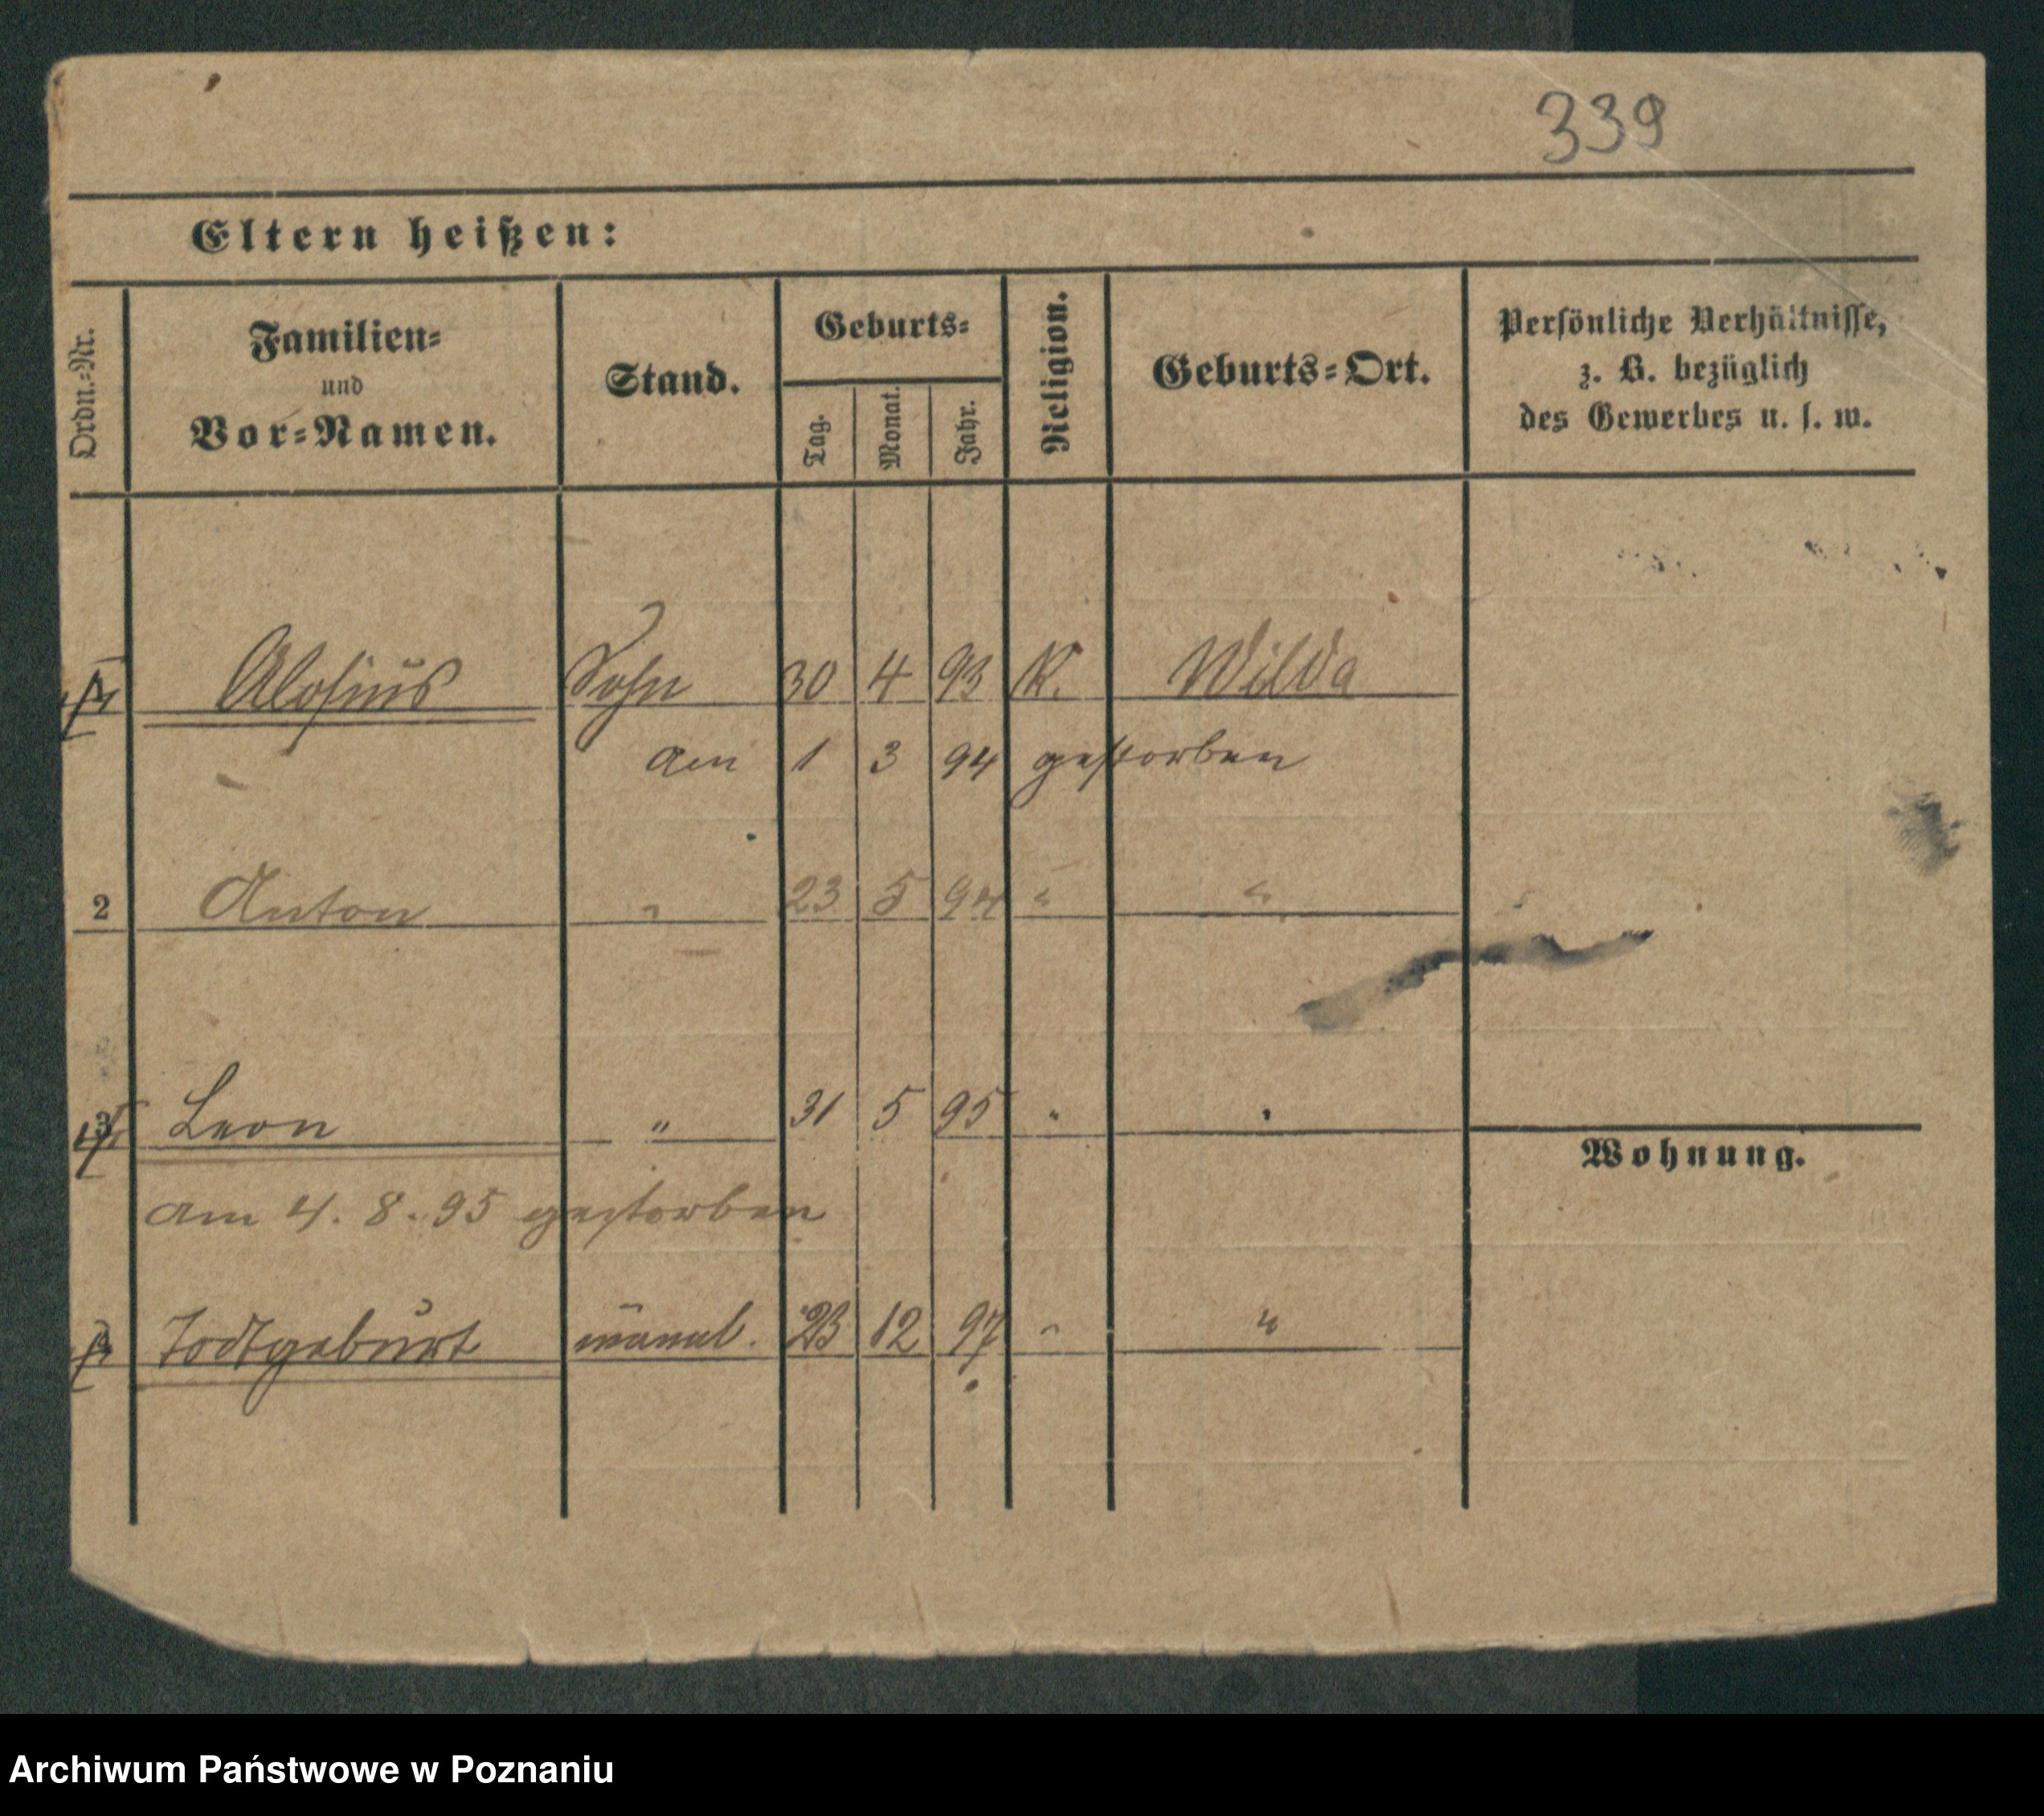 339
Eltern heißen:
Ordn.-Nr.
Familien-
und
Vor-Namen.
Stand.
Geburts-
Tag.
Monat.
Jahr.
Religion.
Geburts-Ort.
Persönliche Verhältnisse,
z. B. bezüglich
des Gewerbes u. s. w.
Alosius Sohn 30 4 93 K. Wilda
am 1 3 94 gestorben
2 Anton " 23 5 94 " "
3 Leon " 31 5 95 " "
Wohnung.
am 4. 8. 95 gestorben
Todtgeburt männl. 23 12 97 " "
Archiwum Państwowe w Poznaniu